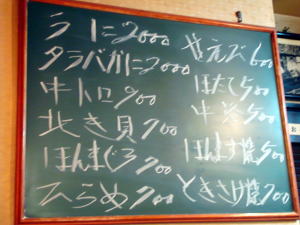 うに2000
タラバガニ2000
中トロ900
北き貝700
ほんまぐろ700
ひらめ700
甘えび600
ほたて500
ほんます焼500
ときさけ焼700